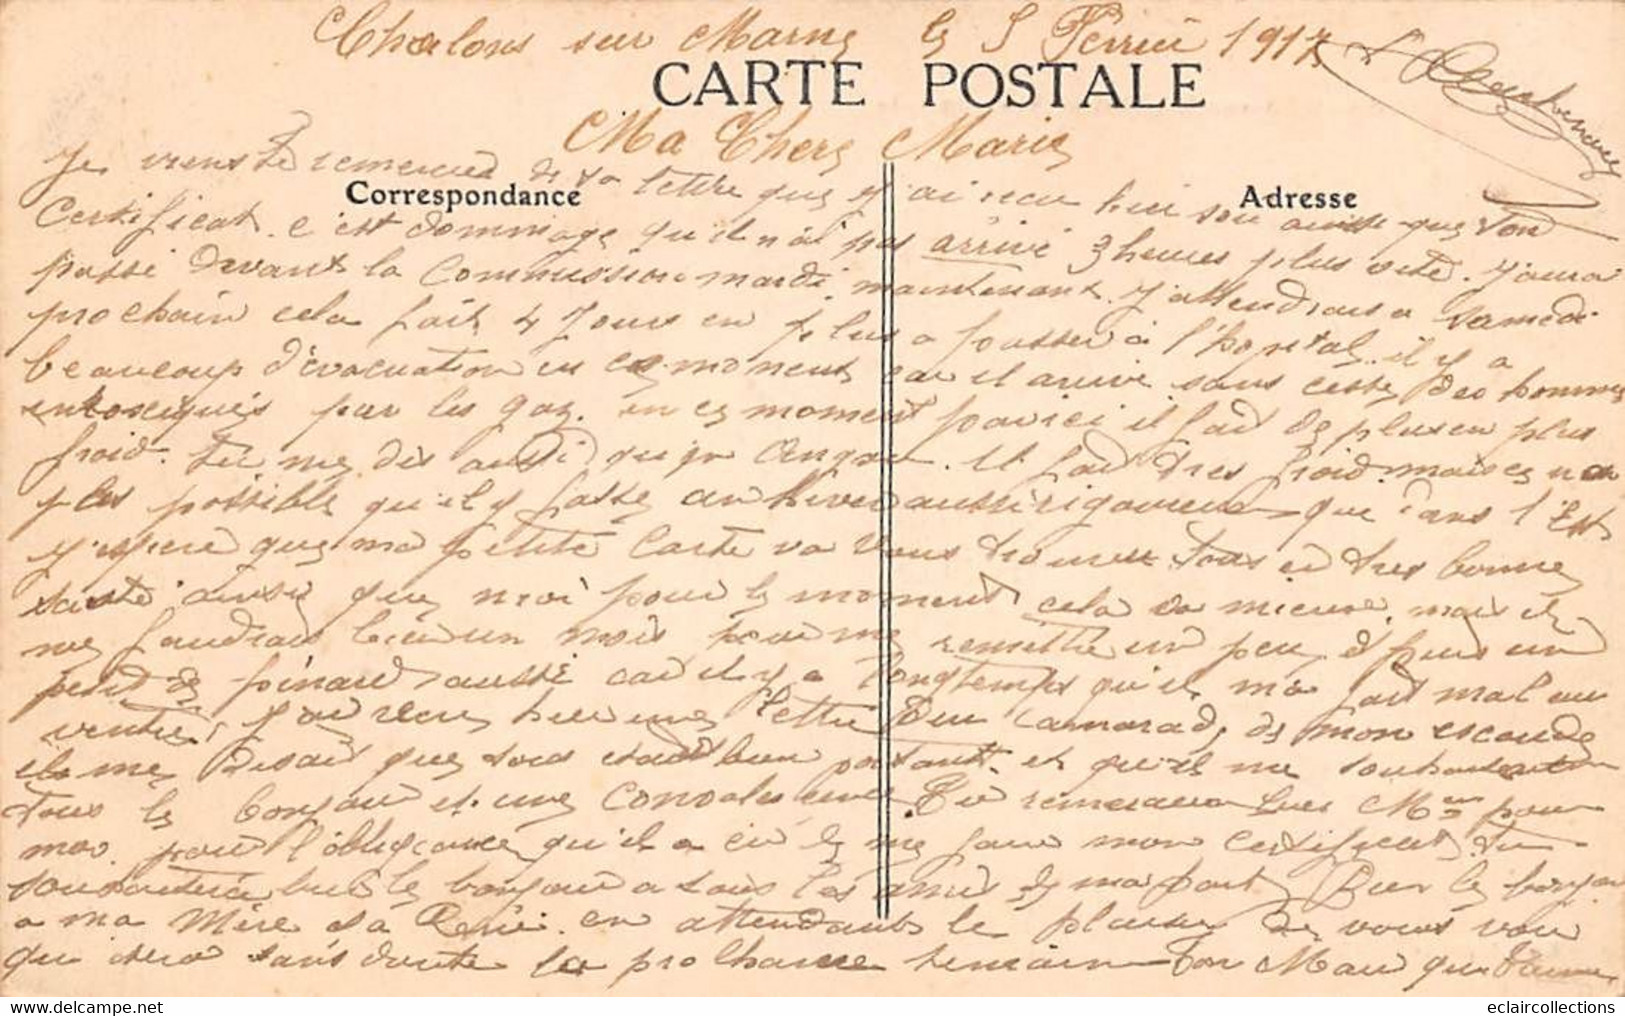 Chalons sur Marne le 5 Fevrier 1917
CARTE POSTALE
Ma Chere Marie
Je viens te remercier de ta lettre que j'ai recu hier soir ainsi que ton
Correspondance
Adresse
Certificat. c'est dommage qu'il n'ai pas arrivé 3 heures plus vite. J'aurai
passé devant la Commission mardi. maintenant j'attendrais a samedi
prochain cela fait 4 Jours en plus a passer à l'hopital. il y a
beaucoup d'évacuation en ce moment car il arrive sans cesse des hommes
intoxiqués par les gaz. en ce moment par ici il fait de plus en plus
froid. tu me dis aussi qu'ja Angou. Il fait tres froid. mais ce n'es
pas possible qu'il y fasse un hiver aussi rigoureux que dans l'Est
J'espère que ma petite Carte va vous trouver tous en tres bonne
santé ainsi que moi pour le moment cela va mieux. mais il
me faudrais bien un mois pour me remettre un peu, et puis un
peu de pinard aussi car il y a longtemps qu'il m'a fait mal au
ventre, J'ai recu hier une lettre d'un camarade de mon escouade
il me disait que tous etait bien portant. et qu'il me souhaitait
tous le bonjour et une convalescence. Tu remerciera bien Mme pour
moi pour l'obligeance qu'il a eu de me faire mon certificat. tu
souhaitera bien le bonjour a tous les amis de ma part. Bien le bonjour
a ma Mère et a René. en attendant le plaisir de vous voir
qui sera sans doute la prochaine semaine Ton Mari qui t'aime
eclaircollections